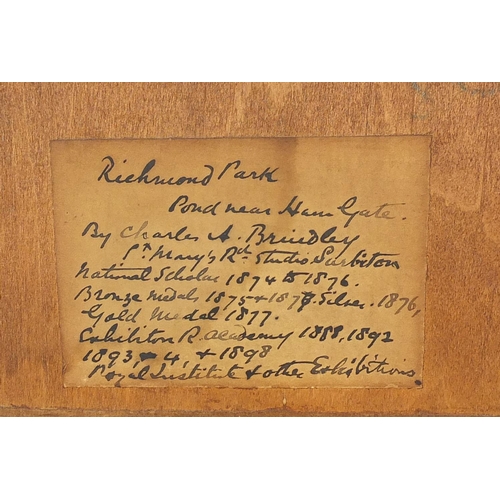 Richmond Park
Pond near Ham Gate.
By Charles A. Brindley
St Mary's Rd Studio Surbiton
National Scholar 1874 to 1876.
Bronze medals 1875 & 1877. Silver. 1876,
Gold Medal 1877.
Exhibiton R. Academy 1888, 1892
1893, & 4, & 1898
Royal Institute & other Exhibitions